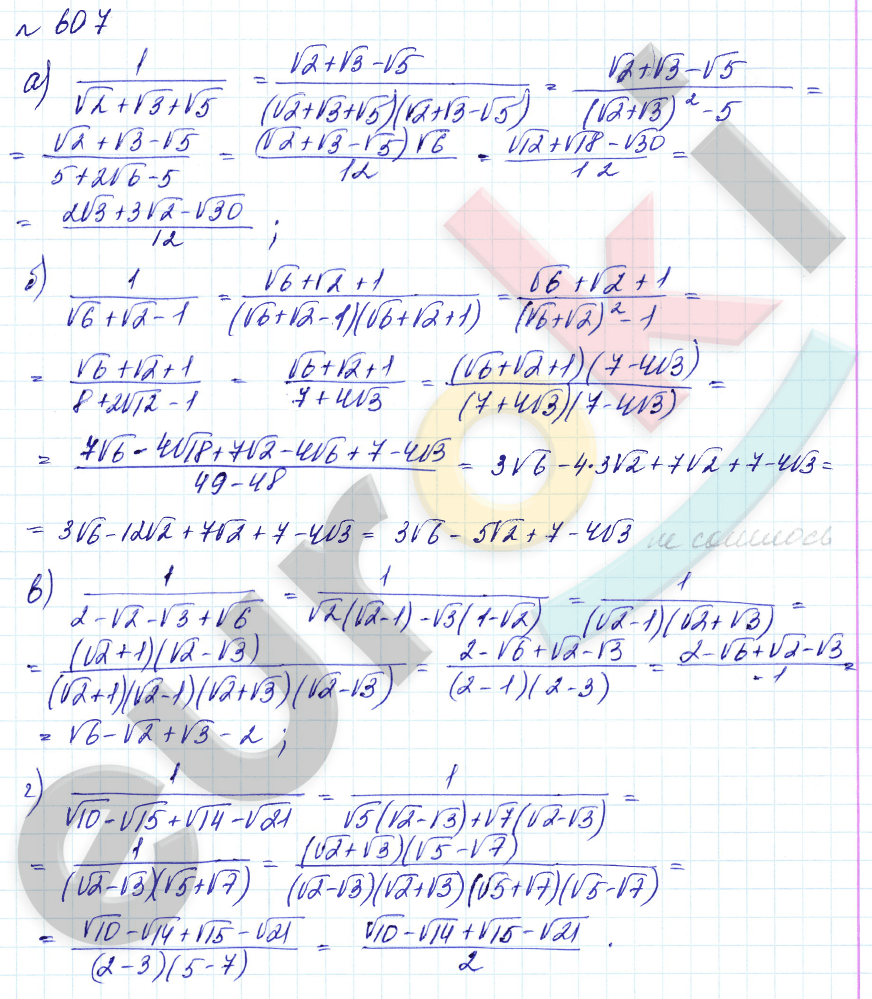 № 607
а) 1/(√2+√3+√5) = (√2+√3-√5)/((√2+√3+√5)(√2+√3-√5)) = (√2+√3-√5)/((√2+√3)²-5) =
= (√2+√3-√5)/(5+2√6-5) = ((√2+√3-√5)√6)/12 = (√12+√18-√30)/12 =
= (2√3+3√2-√30)/12 ;
б) 1/(√6+√2-1) = (√6+√2+1)/((√6+√2-1)(√6+√2+1)) = (√6+√2+1)/((√6+√2)²-1) =
= (√6+√2+1)/(8+2√12-1) = (√6+√2+1)/(7+4√3) = ((√6+√2+1)(7-4√3))/((7+4√3)(7-4√3)) =
= (7√6-4√18+7√2-4√6+7-4√3)/(49-48) = 3√6-4·3√2+7√2+7-4√3 =
= 3√6-12√2+7√2+7-4√3 = 3√6-5√2+7-4√3 не сошлось
в) 1/(2-√2-√3+√6) = 1/(√2(√2-1)-√3(1-√2)) = 1/((√2-1)(√2+√3)) =
= ((√2+1)(√2-√3))/((√2+1)(√2-1)(√2+√3)(√2-√3)) = (2-√6+√2-√3)/((2-1)(2-3)) = (2-√6+√2-√3)/-1 =
= √6-√2+√3-2 ;
г) 1/(√10-√15+√14-√21) = 1/(√5(√2-√3)+√7(√2-√3)) =
= 1/((√2-√3)(√5+√7)) = ((√2+√3)(√5-√7))/((√2-√3)(√2+√3)(√5+√7)(√5-√7)) =
= (√10-√14+√15-√21)/((2-3)(5-7)) = (√10-√14+√15-√21)/2 .
euroki